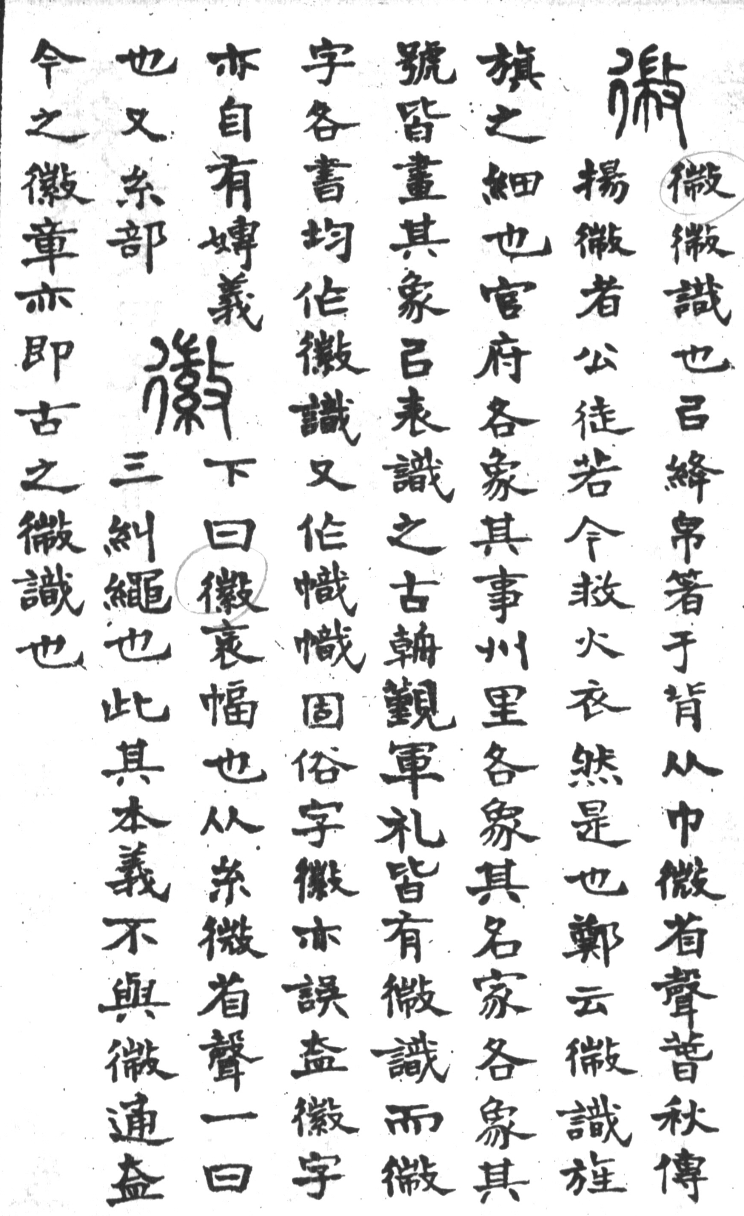 幑
幑幑識也㠯絳帛箸于背从巾微省聲萅秋傳
揚幑者公徒若今救火衣然是也鄭云幑識旌
旗之細也官府各象其事州里各象其名家各象其
號皆畫其象㠯表識之古朝覲軍礼皆有幑識而幑
字各書均作徽識又作幟幟固俗字徽亦誤葢徽字
亦自有嫥義
也又糸部
徽
下曰徽衺幅也从糸微省聲一曰
三糾繩也此其本義不與幑通葢
今之徽章亦即古之幑識也